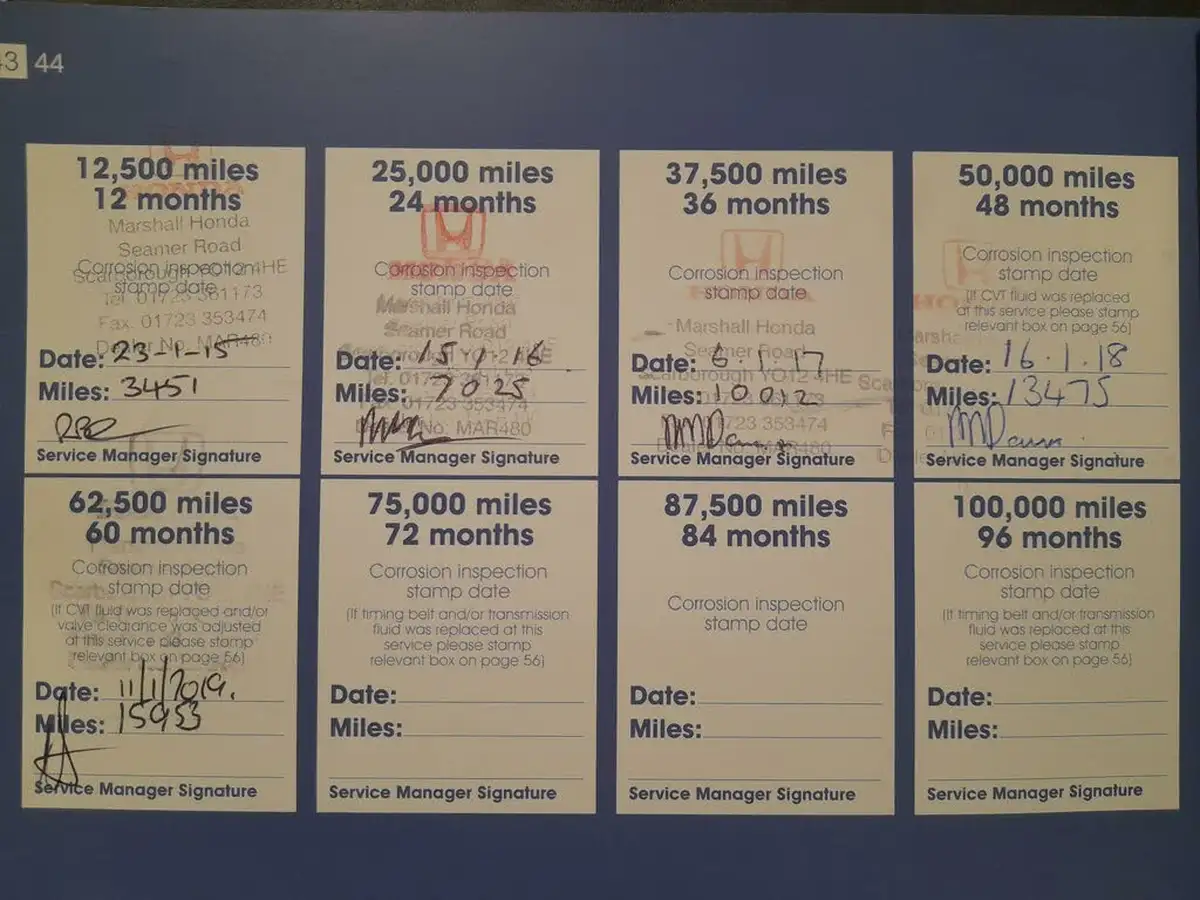 43 44
12,500 miles
12 months
Marshall Honda
Seamer Road
Corrosion inspection
Scarborough YO12 4HE
stamp date
Tel. 01723 361173
Fax. 01723 353474
Dealer No. MAR480
Date: 23-1-15
Miles: 3451
Service Manager Signature
25,000 miles
24 months
Corrosion inspection
stamp date
Marshall Honda
Seamer Road
Scarborough YO12 4HE
Date: 15 1 16
Miles: 7025
01723 353474
No: MAR480
Service Manager Signature
37,500 miles
36 months
Corrosion inspection
stamp date
HONDA
Marshall Honda
Seamer Road
Date: 6.1.17
Scarborough YO12 4HE
Miles: 10012
01723 353474
Dealer No. MAR480
Service Manager Signature
50,000 miles
48 months
Corrosion inspection
stamp date
(If CVT fluid was replaced
at this service please stamp
relevant box on page 56)
Date: 16.1.18
Miles: 13475
Service Manager Signature
62,500 miles
60 months
Corrosion inspection
stamp date
(If CVT fluid was replaced and/or
valve clearance was adjusted
at this service please stamp
relevant box on page 56)
Date: 11/1/2019.
Miles: 15953
Service Manager Signature
75,000 miles
72 months
Corrosion inspection
stamp date
(If timing belt and/or transmission
fluid was replaced at this
service please stamp
relevant box on page 56)
Date:
Miles:
Service Manager Signature
87,500 miles
84 months
Corrosion inspection
stamp date
Date:
Miles:
Service Manager Signature
100,000 miles
96 months
Corrosion inspection
stamp date
(If timing belt and/or transmission
fluid was replaced at this
service please stamp
relevant box on page 56)
Date:
Miles:
Service Manager Signature